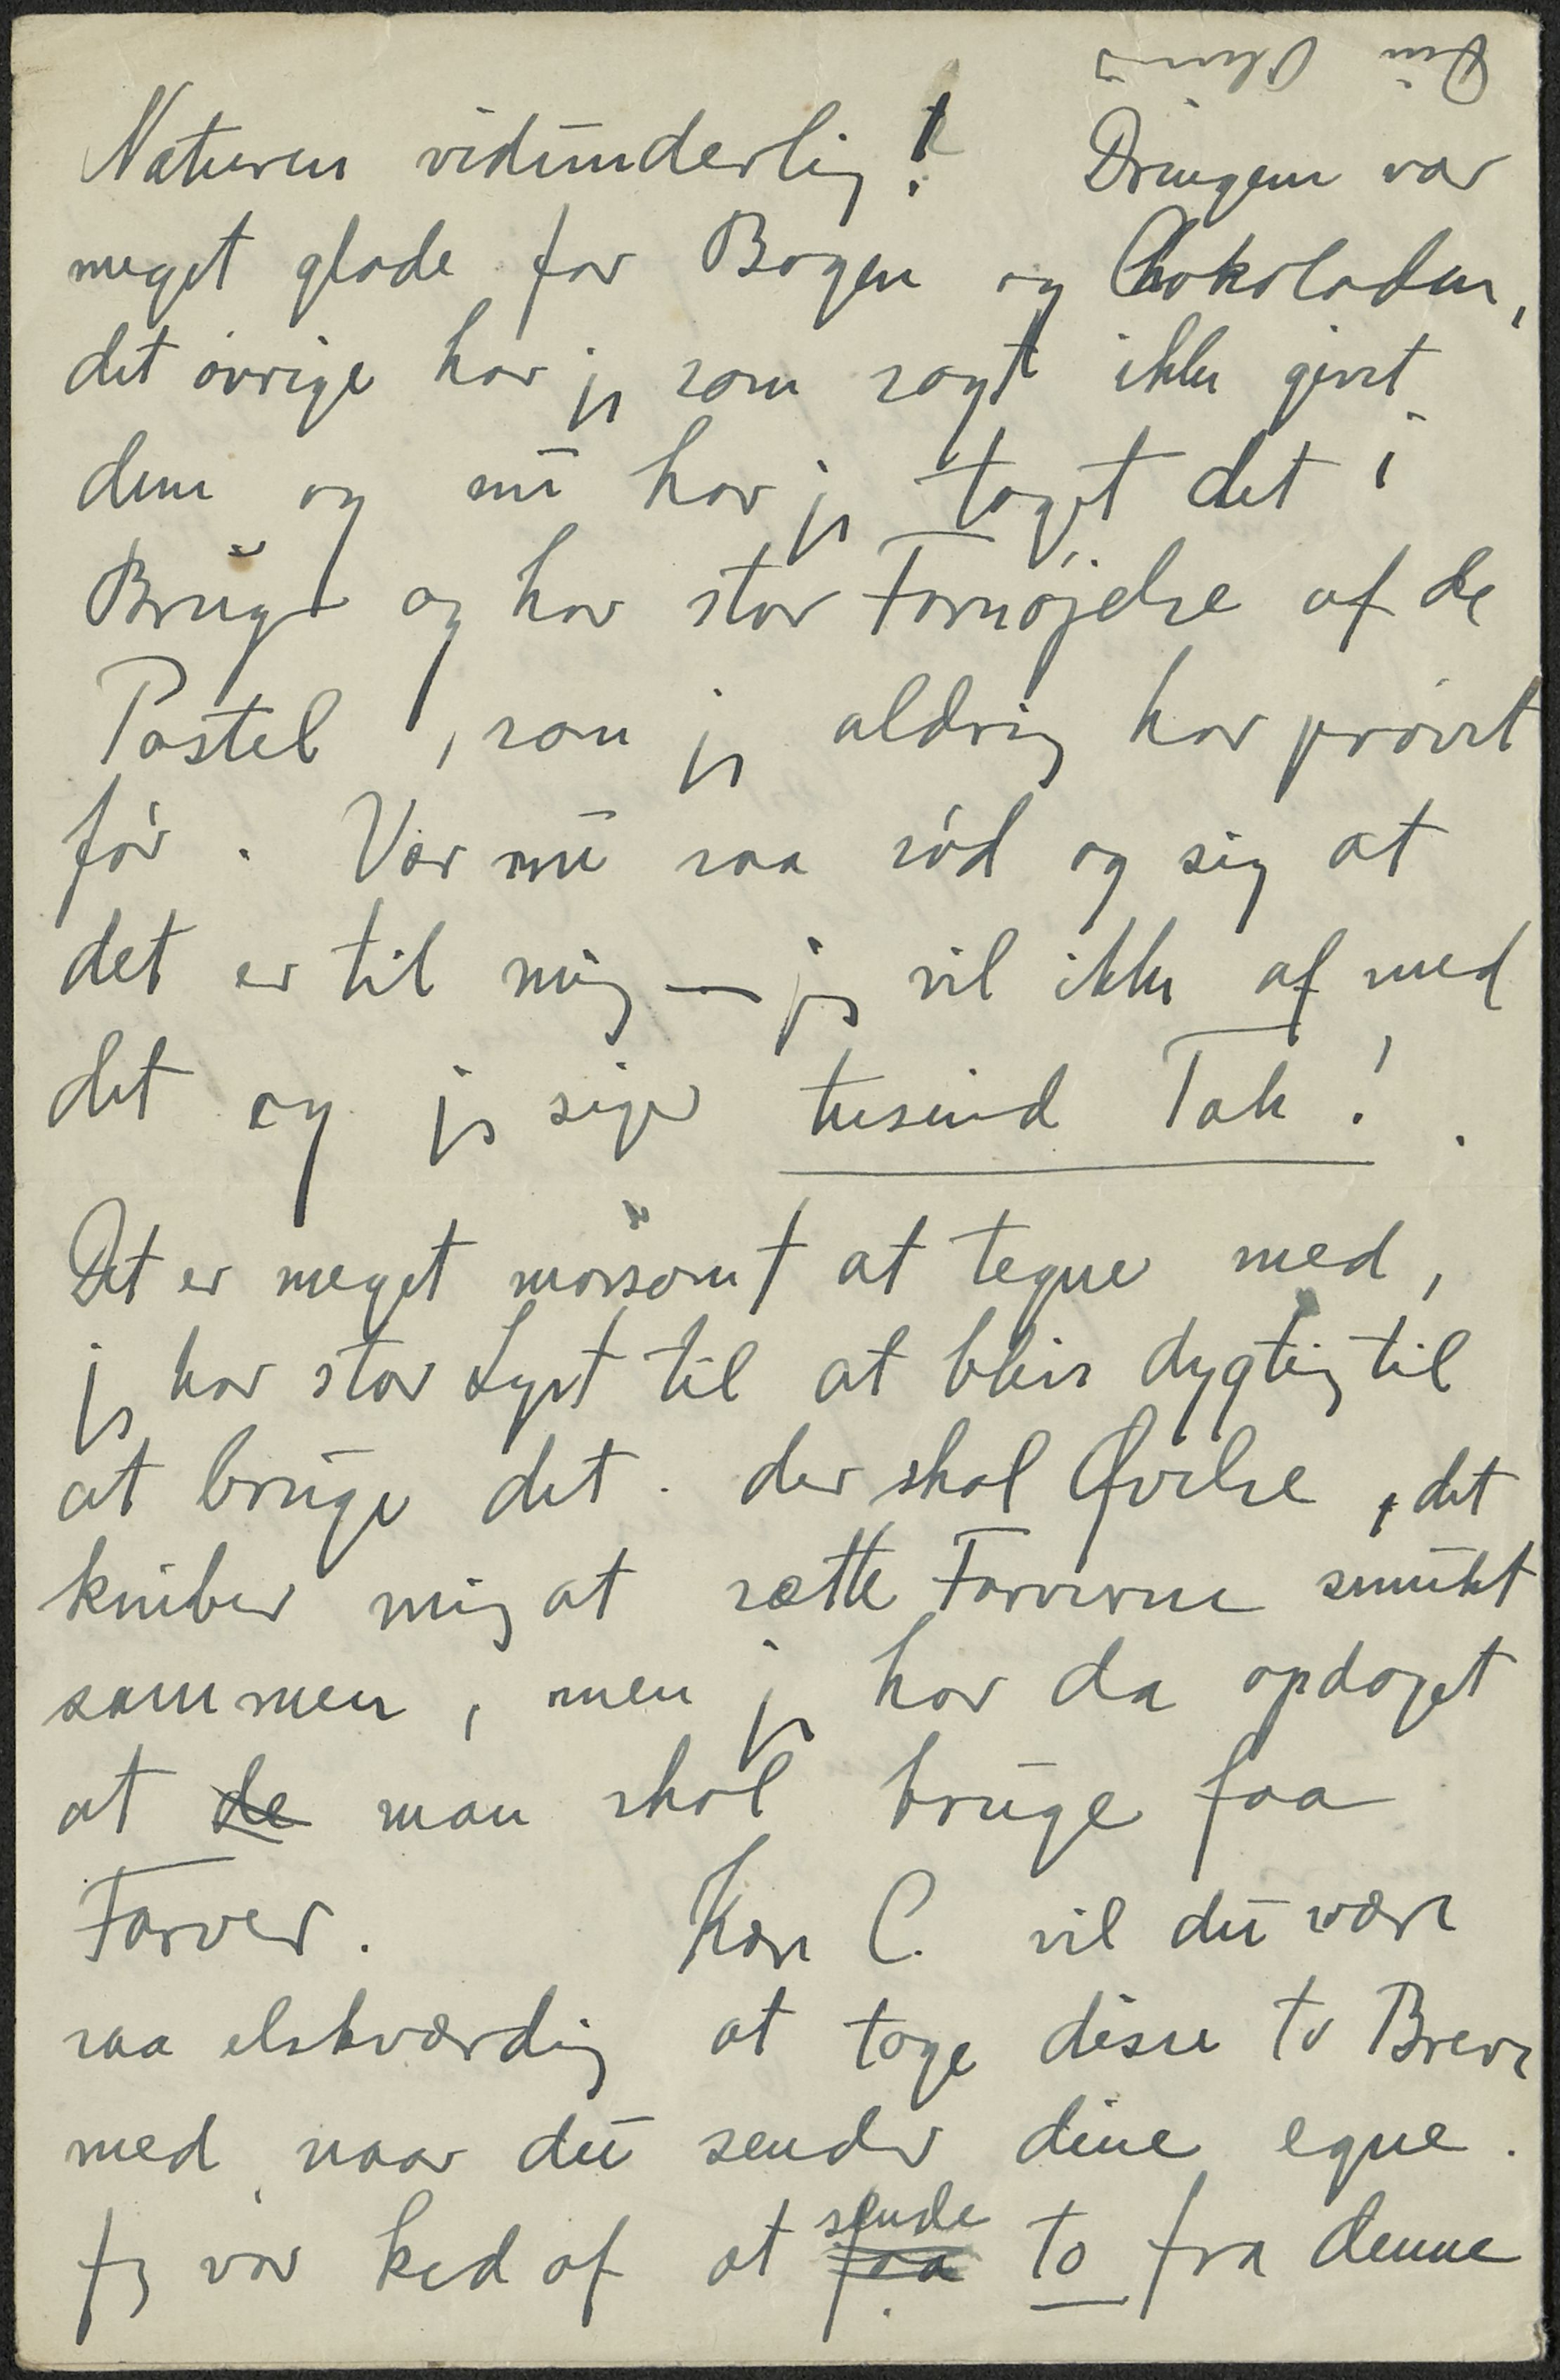 Naturen vidunderlig! Drengene var
meget glade for Bogen og Chokoladen,
det øvrige har jeg som sagt ikke givet
dem og nu har jeg taget det i
Brug og har stor Fornøjelse af de
Pastel, som jeg aldrig har prøvet
før. Vær nu saa sød og sig at
det er til mig — jeg vil ikke af med
det og jeg siger tusind Tak!.
Det er meget morsomt at tegne med,
jeg har stor Lyst til at blive dygtig til
at bruge det. der skal Øvelse, det
kniber mig at sætte Farverne smukt
sammen, men jeg har da opdaget
at de man skal bruge faa
Farver. Kære C. vil du være
saa elskværdig at tage disse to Breve
med, naar du sender dine egne.
Jeg var ked af at faa sende to fra denne
Din